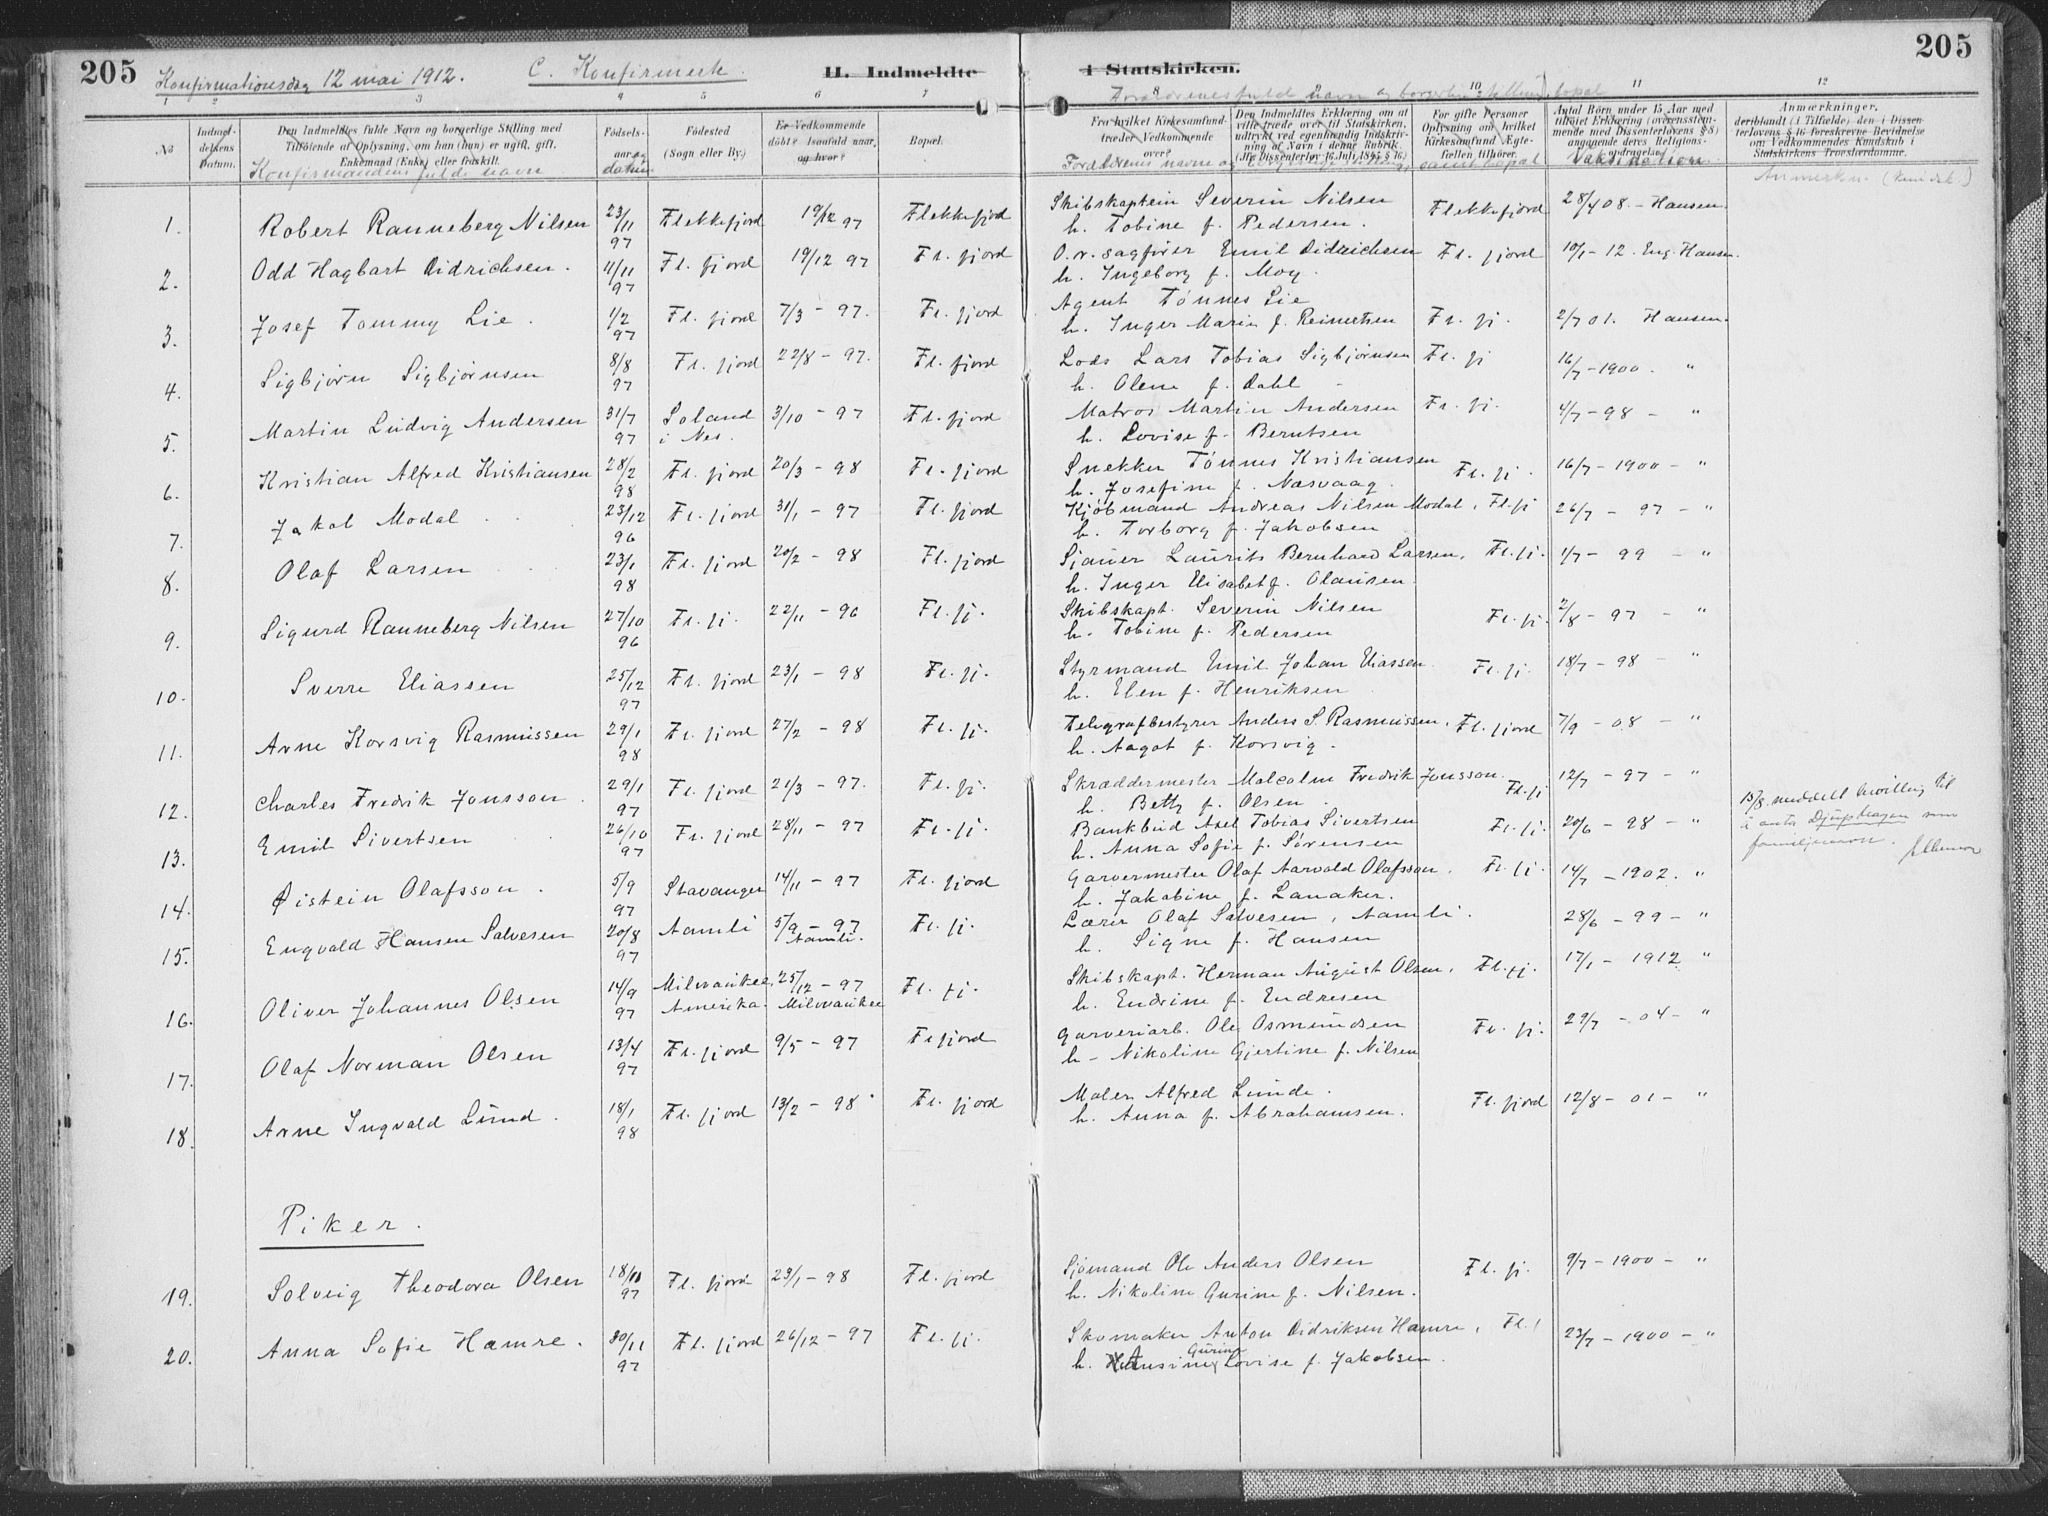 205
Konfirmationsdag 12 mai 1912. C. Konfirmerte H. Indmeldte i Statskirken.
205
1 2 3 4 5 6 7 8 9 10 11 12
No
Indmeldelsens Datum.
Den Indmeldtes fulde Navn og borgerlige Stilling med Tilføiende af Oplysning, om han (hun) er ugift, gift, Enkemand (Enke) eller fraskilt.
Konfirmandens fulde navn
Fødselsaar og datum
Fødested (Sogn eller By.)
Er Vedkommende døbt? Isaafald naar, og hvor?
Bopæl.
Fra hvilket Kirkesamfund træder Vedkommende over?
Den Indmeldtes Erklæring om at ville træde over til Statskirken, udtrykt ved egenhændig Indskrivning af Navn i denne Rubrik. (Jfr. Dissenterlov 16 Juli 1845 § 16.)
For gifte Personer Oplysning om hvilket Kirkesamfund Ægtefællen tilhører.
Antal Børn under 15 Aar med tilføiet Erklæring (overensstemmende med Dissenterlovens § 8) angaaende deres Religionsopdragelse.
Vaksination
Anmærkninger, deriblandt (i Tilfælde) den i Dissenterlovens § 16 foreskrevne Bevidnelse om Vedkommendes Kundskab i Statskirkens Troeslærdomme.
1. Robert Ranneberg Nilsen 23/11 97 Flekkefjord 19/12 97 Flekkefjord Skibskaptein Severin Nilsen Flekkefjord 28/4 08. - Hansen.
h. Tobine f. Pedersen.
2. Odd Hagbart Didrichsen. 11/11 97 Fl. fjord 19/12 97 Fl. fjord O.r. sagfører Emil Didrichsen Fl. fjord 10/1 - 12. Eng. Hansen.
h. Ingeborg f. Moy.
3. Josef Tommy Lie. 1/2 97 Fl. fjord 7/3 - 97. Fl. fjord Agent Tønnes Lie
h. Inger Marie f. Reinertsen Fl. fj. 2/7 01. Hansen.
4. Sigbjørn Sigbjørnsen 8/8 97 Fl. fjord 22/8 - 97. Fl. fjord Lods Lars Tobias Sigbjørnsen Fl. fj 16/7 - 1900. "
h. Olene f. Dahl -
5. Martin Ludvig Andersen 31/7 97 Soland i Nes. 3/10 - 97 Fl. fjord Matros Martin Andersen Fl. fj. 4/7 - 98 - "
h. Lovise f. Berntsen
6. Kristian Alfred Kristiansen 28/2 98 Fl. fjord 20/3 - 98 Fl. fjord Snekker Tønnes Kristiansen Fl. fj. 16/7 - 1900 - "
h. Josefine f. Næsvaag.
7. Jakob Modal 23/12 96 Fl. fjord 31/1 - 97 Fl. fjord Kjøbmand Andreas Nilsen Modal, Fl. fj 26/7 - 97 - "
h. Torborg f. Jakobsen
8. Olaf Larsen 23/1 98 Fl. fjord 20/2 - 98 Fl. fjord Sjauer Laurits Bernhard Larsen, Fl. fj. 1/7 - 99 - "
h. Inger Elisabet f. Olausen.
9. Sigurd Ranneberg Nilsen 27/10 96 Fl. fj. 22/11 - 96 Fl. fj. Skibskapt. Severin Nilsen Fl. fj. 2/8 - 97 - "
h. Tobine f. Pedersen
10. Sverre Eliassen 25/12 97 Fl. fjord 23/1 - 98 Fl. fj. Styrmand Emil Johan Eliassen Fl. fj. 18/7 - 98 - "
h. Elen f. Henriksen
11. Arne Korsvig Rasmussen 29/1 98 Fl. fjord 27/2 - 98 Fl. fj. Telegrafbestyrer Anders S. Rasmussen, Fl. fjord 7/9 - 08 - "
h. Aagot f. Korsvig.
12. Charles Fredrik Jonsson. 29/1 97 Fl. fjord 21/3 - 97. Fl. fj. Skræddermester Malcolm Fredrik Jonsson. Fl. fj 12/7 - 97 - "
h. Betty f. Olsen
13. Emil Sivertsen 26/10 97 Fl. fjord 28/11 - 97 Fl. fj. Bankbud Axel Tobias Sivertsen Fl. fj. 20/6 - 98 - " 15/8 meddelt bevilling til
h. Anna Sofie f. Sørensen i anta Djuphagen som
familjenavn.
14. Øistein Olafsson. 5/9 97 Stavanger 14/11 - 97 Fl. fjord Garvermester Olaf Aarvold Olafsson, Fl. fj. 14/7 - 1902. "
h. Jakobine f. Lanaker.
15. Engvald Hansen Salvesen 20/8 97 Aamli 5/9 - 97 Aamli. Fl. fj. Lærer Olaf Salvesen, Aamli. 28/6 - 99 - "
h. Signe f. Hansen
16. Oliver Johannes Olsen 14/9 97 Milwaukee, Amerika. 25/12 - 97 Milwaukee Fl. fj. Skibskapt. Herman August Olsen, Fl. fj. 17/1 - 1912 "
h. Endrine f. Endresen
17. Olaf Norman Olsen 13/4 97 Fl. fjord 9/5 - 97 Fl fjord Garveriarb. Ole Osmundsen Fl. fj. 29/7 - 04 - "
h - Nikoline Gjertine f. Nilsen
18. Arne Ingvald Lund. 18/1 98 Fl. fjord 13/2 - 98 Fl. fjord Maler Alfred Lunde. Fl. fjord 12/8 - 01 - "
h. Anna f. Abrahamsen.
Piker.
19. Solveig Theodora Olsen 18/11 97 Fl. fjord 23/1 - 98 Fl. fjord Sjømand Ole Anders Olsen Fl. fj. 9/7 - 1900 - "
h. Nikoline Gurine f. Nilsen.
20. Anna Sofie Hamre. 30/11 97 Fl. fjord 26/12 - 97 Fl. fj. Skomaker Anton Didriksen Hamre, Fl. 23/7 - 1900 - "
h. Ansine Gurine Lovise f. Jakobsen.